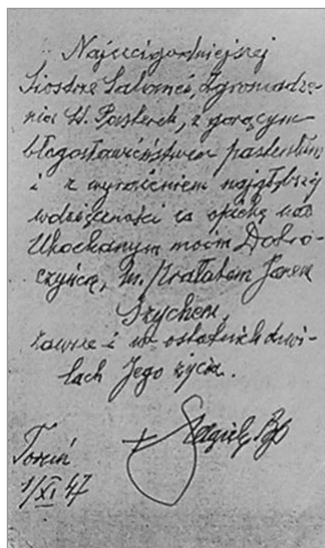 Najczcigodniejszej
Siostrze Salomei, Zgromadze-
nia Pasterek, z gorącym
błogosławieństwem pasterskim
i z wyrażeniem najgłębszej
wdzięczności za opiekę nad
Ukochanym moim Dobro-
czyńcą, Prałatem Janem
zawsze i w ostatnich chwi-
lach Jego życia.
Bp
Toruń
1/XI 47